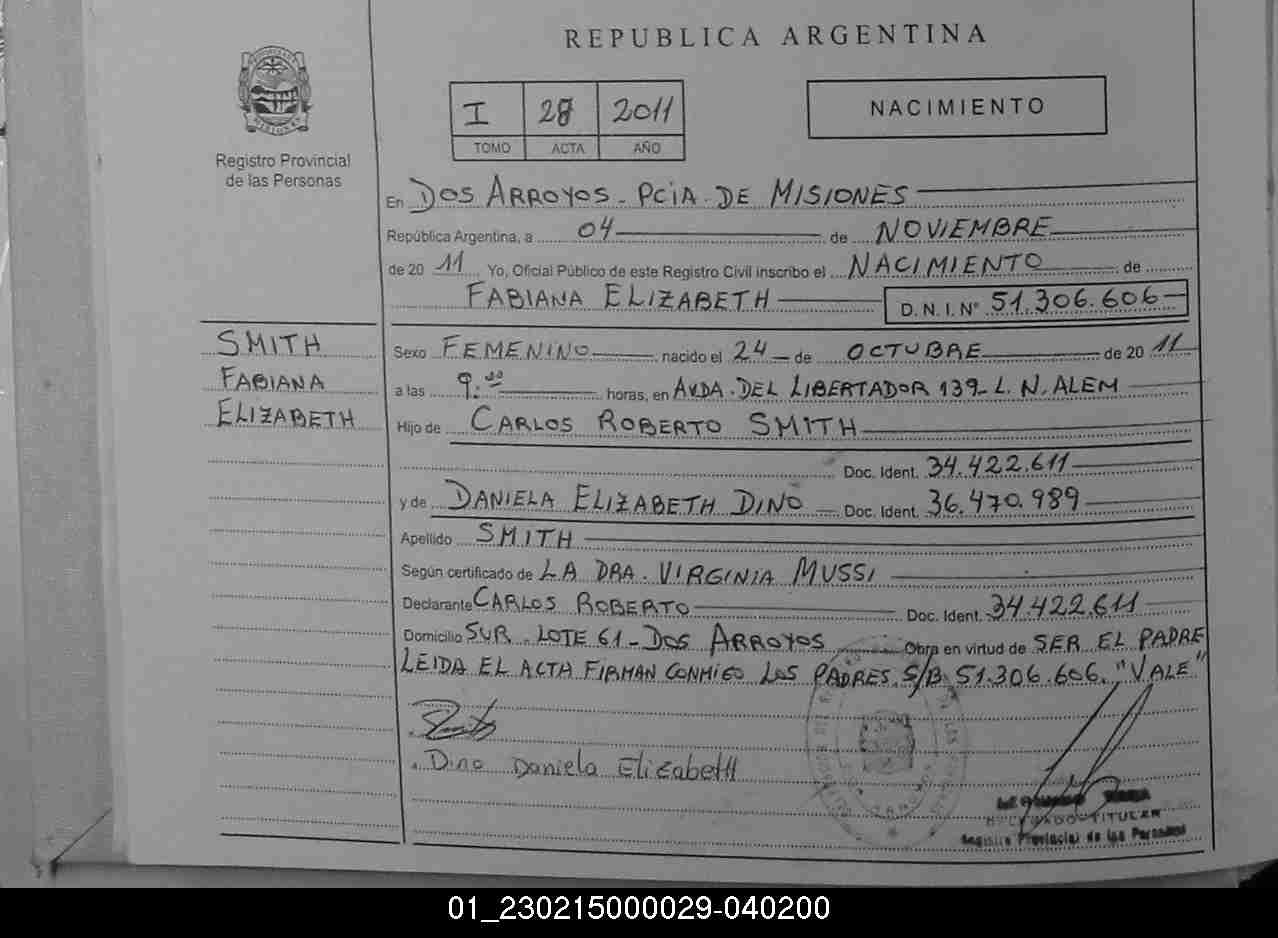 REPUBLICA ARGENTINA
I 28 2011
TOMO ACTA AÑO
NACIMIENTO
Registro Provincial
de las Personas
En DOS ARROYOS - PCIA. DE MISIONES
República Argentina, a 04 de NOVIEMBRE
de 20 11 Yo, Oficial Público de este Registro Civil inscribo el NACIMIENTO de
FABIANA ELIZABETH D. N. I. Nº 51.306.606
SMITH
FABIANA
ELIZABETH
Sexo FEMENINO nacido el 24 de OCTUBRE de 20 11
a las 9:00 horas, en AVDA. DEL LIBERTADOR 139 - L. N. ALEM
Hijo de CARLOS ROBERTO SMITH
Doc. Ident. 34.422.611
y de DANIELA ELIZABETH DINO Doc. Ident. 36.470.989
Apellido SMITH
Según certificado de LA DRA. VIRGINIA MUSSI
Declarante CARLOS ROBERTO Doc. Ident. 34.422.611
Domicilio SUR. LOTE 61 - DOS ARROYOS Obra en virtud de SER EL PADRE
LEIDA EL ACTA FIRMAN CONMIGO LOS PADRES. S/B: 51.306.606. "VALE"
Dino Daniela Elizabeth
DELEGADO TITULAR
Registro Provincial de las Personas
01_230215000029-040200